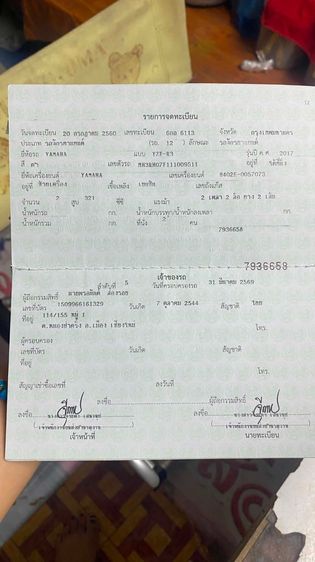 12
รายการจดทะเบียน
วันจดทะเบียน 20 กรกฎาคม 2560 เลขทะเบียน 6กล 6113 จังหวัด กรุงเทพมหานคร
ประเภท รถจักรยานยนต์ (รย. 12 ) ลักษณะ รถจักรยานยนต์
ยี่ห้อรถ YAMAHA แบบ YZF-R3 รุ่นปี ค.ศ. 2017
สี ดำ เลขตัวรถ อยู่ที่
ยี่ห้อเครื่องยนต์ YAMAHA เลขเครื่องยนต์ H402E-0057073
อยู่ที่ ข้างเครื่อง เชื้อเพลิง เบนซิน เลขถังแก๊ส
จำนวน 2 สูบ 321 ซีซี แรงม้า 2 เพลา 2 ล้อ ยาง 2 เส้น
น้ำหนักรถ กก. น้ำหนักบรรทุก/น้ำหนักลงเพลา กก.
น้ำหนักรวม กก. ที่นั่ง 2 คน
7936658
7936658
เจ้าของรถ
ลำดับที่ 5 วันที่ครอบครองรถ 31 มีนาคม 2569
ผู้ถือกรรมสิทธิ์
เลขที่บัตร 1509966161329 วันเกิด 7 ตุลาคม 2544 สัญชาติ ไทย
ที่อยู่ 114/155 หมู่ 1
อ.เมือง โทร.
ผู้ครอบครอง
เลขที่บัตร วันเกิด สัญชาติ
ที่อยู่
โทร.
สัญญาเช่าซื้อเลขที่ ลงวันที่
ผู้ถือกรรมสิทธิ์
ลงชื่อ ลงชื่อ
เจ้าหน้าที่ นายทะเบียน